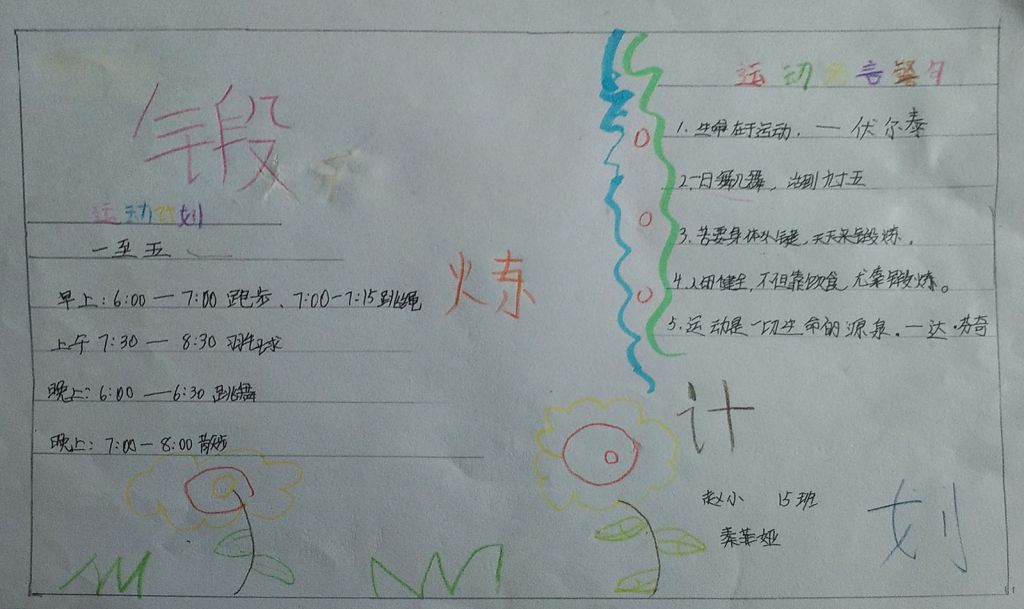 锻
运动计划
一至五
早上:6:00—7:00 跑步、7:00-7:15跳绳
上午 7:30—8:30 羽毛球
晚上:6:00—6:30 跳舞
晚上:7:00—8:00 散步
炼
运动名言警句
1.生命在于运动.—伏尔泰
2.一日舞几舞,活到九十五
3.若要身体健,天天来锻炼.
4.人健生,不但靠饮食,尤靠锻炼。
5.运动是一切生命的源泉.—达·芬奇
计
赵小 15班
秦菲娅
划